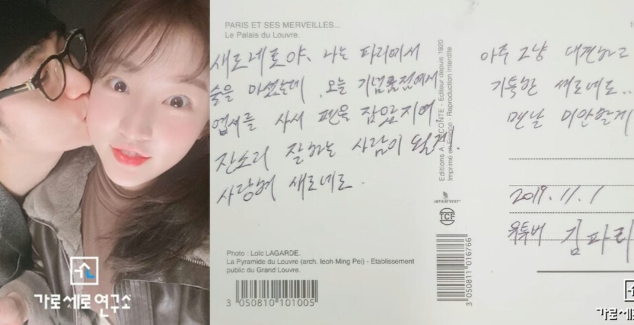 가로세로연구소
PARIS ET SES MERVEILLES...
Le Palais du Louvre.
새로네로야, 나는 파리에서
술을 마셨는데, 오늘 기념품점에서
엽서를 사서 펜을 잡았지여
잔소리 잘하는 사람이 될게
사랑해 새로네로
Photo : Loïc LAGARDE.
La Pyramide du Louvre (arch. Ieoh Ming Pei) - Etablissement
public du Grand Louvre.
3 050810 101005
Editions A. LECONTE - Editeur depuis 1920
Imprimé en - Reproduction interdite
3 050811 016766
아주 그냥 대견하고
기특한 새로네로..
맨날 미안할게
2019. 11. 1
유튜버 김파리
가로세로연구소